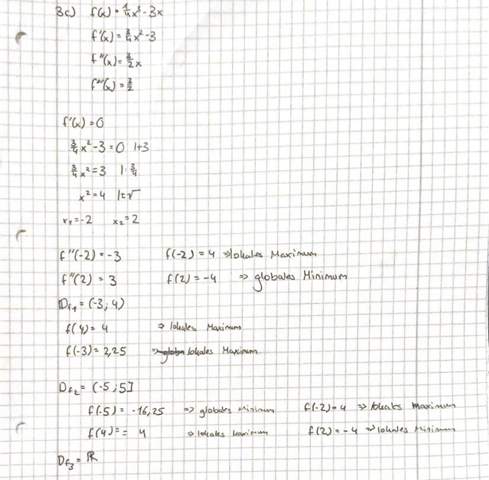 3c) f(x) = 1/4 x³ - 3x
f'(x) = 3/4 x² - 3
f''(x) = 3/2 x
f'''(x) = 3/2
f'(x) = 0
3/4 x² - 3 = 0 | +3
3/4 x² = 3 | : 3/4
x² = 4 | ±√
x₁ = -2 x₂ = 2
f''(-2) = -3 f(-2) = 4 => lokales Maximum
f''(2) = 3 f(2) = -4 => globales Minimum
Df₁ = (-3; 4)
f(4) = 4 => lokales Maximum
f(-3) = 2,25 => lokales Maximum
Df₂ = (-5; 5]
f(-5) = -16,25 => globales Minimum f(-2) = 4 => lokales Maximum
f(4) = = 4 => lokales f(2) = -4 => lokales Minimum
Df₃ = ℝ